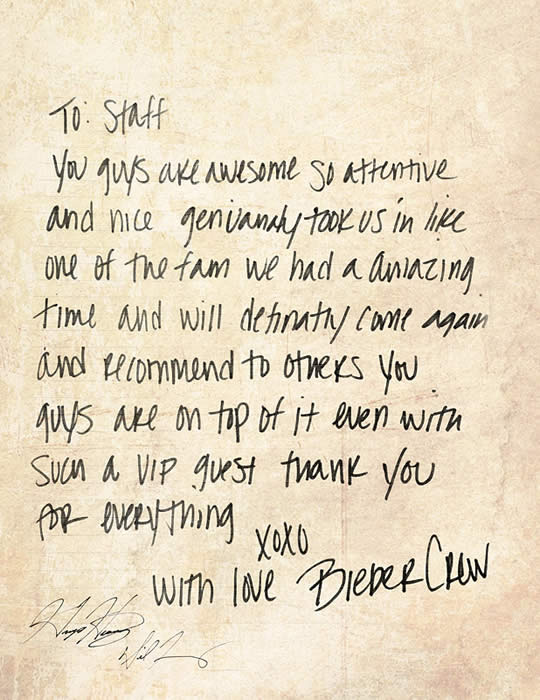 To: Staff
You guys are awesome so attentive
and nice genuanaly took us in like
one of the fam we had a amazing
time and will definatly come again
and recommend to others you
guys are on top of it even with
such a VIP guest thank you
for everything
xoxo
with love Bieber Crew